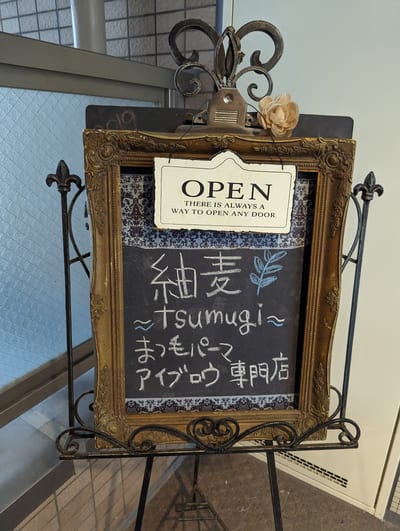 OPEN
THERE IS ALWAYS A
WAY TO OPEN ANY DOOR
紬麦
~tsumugi~
まつ毛パーマ
アイブロウ 専門店